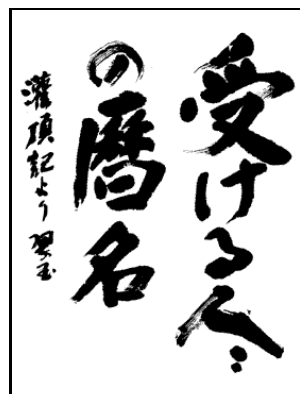 受ける人々
の暦名
灌頂記より 翠玉